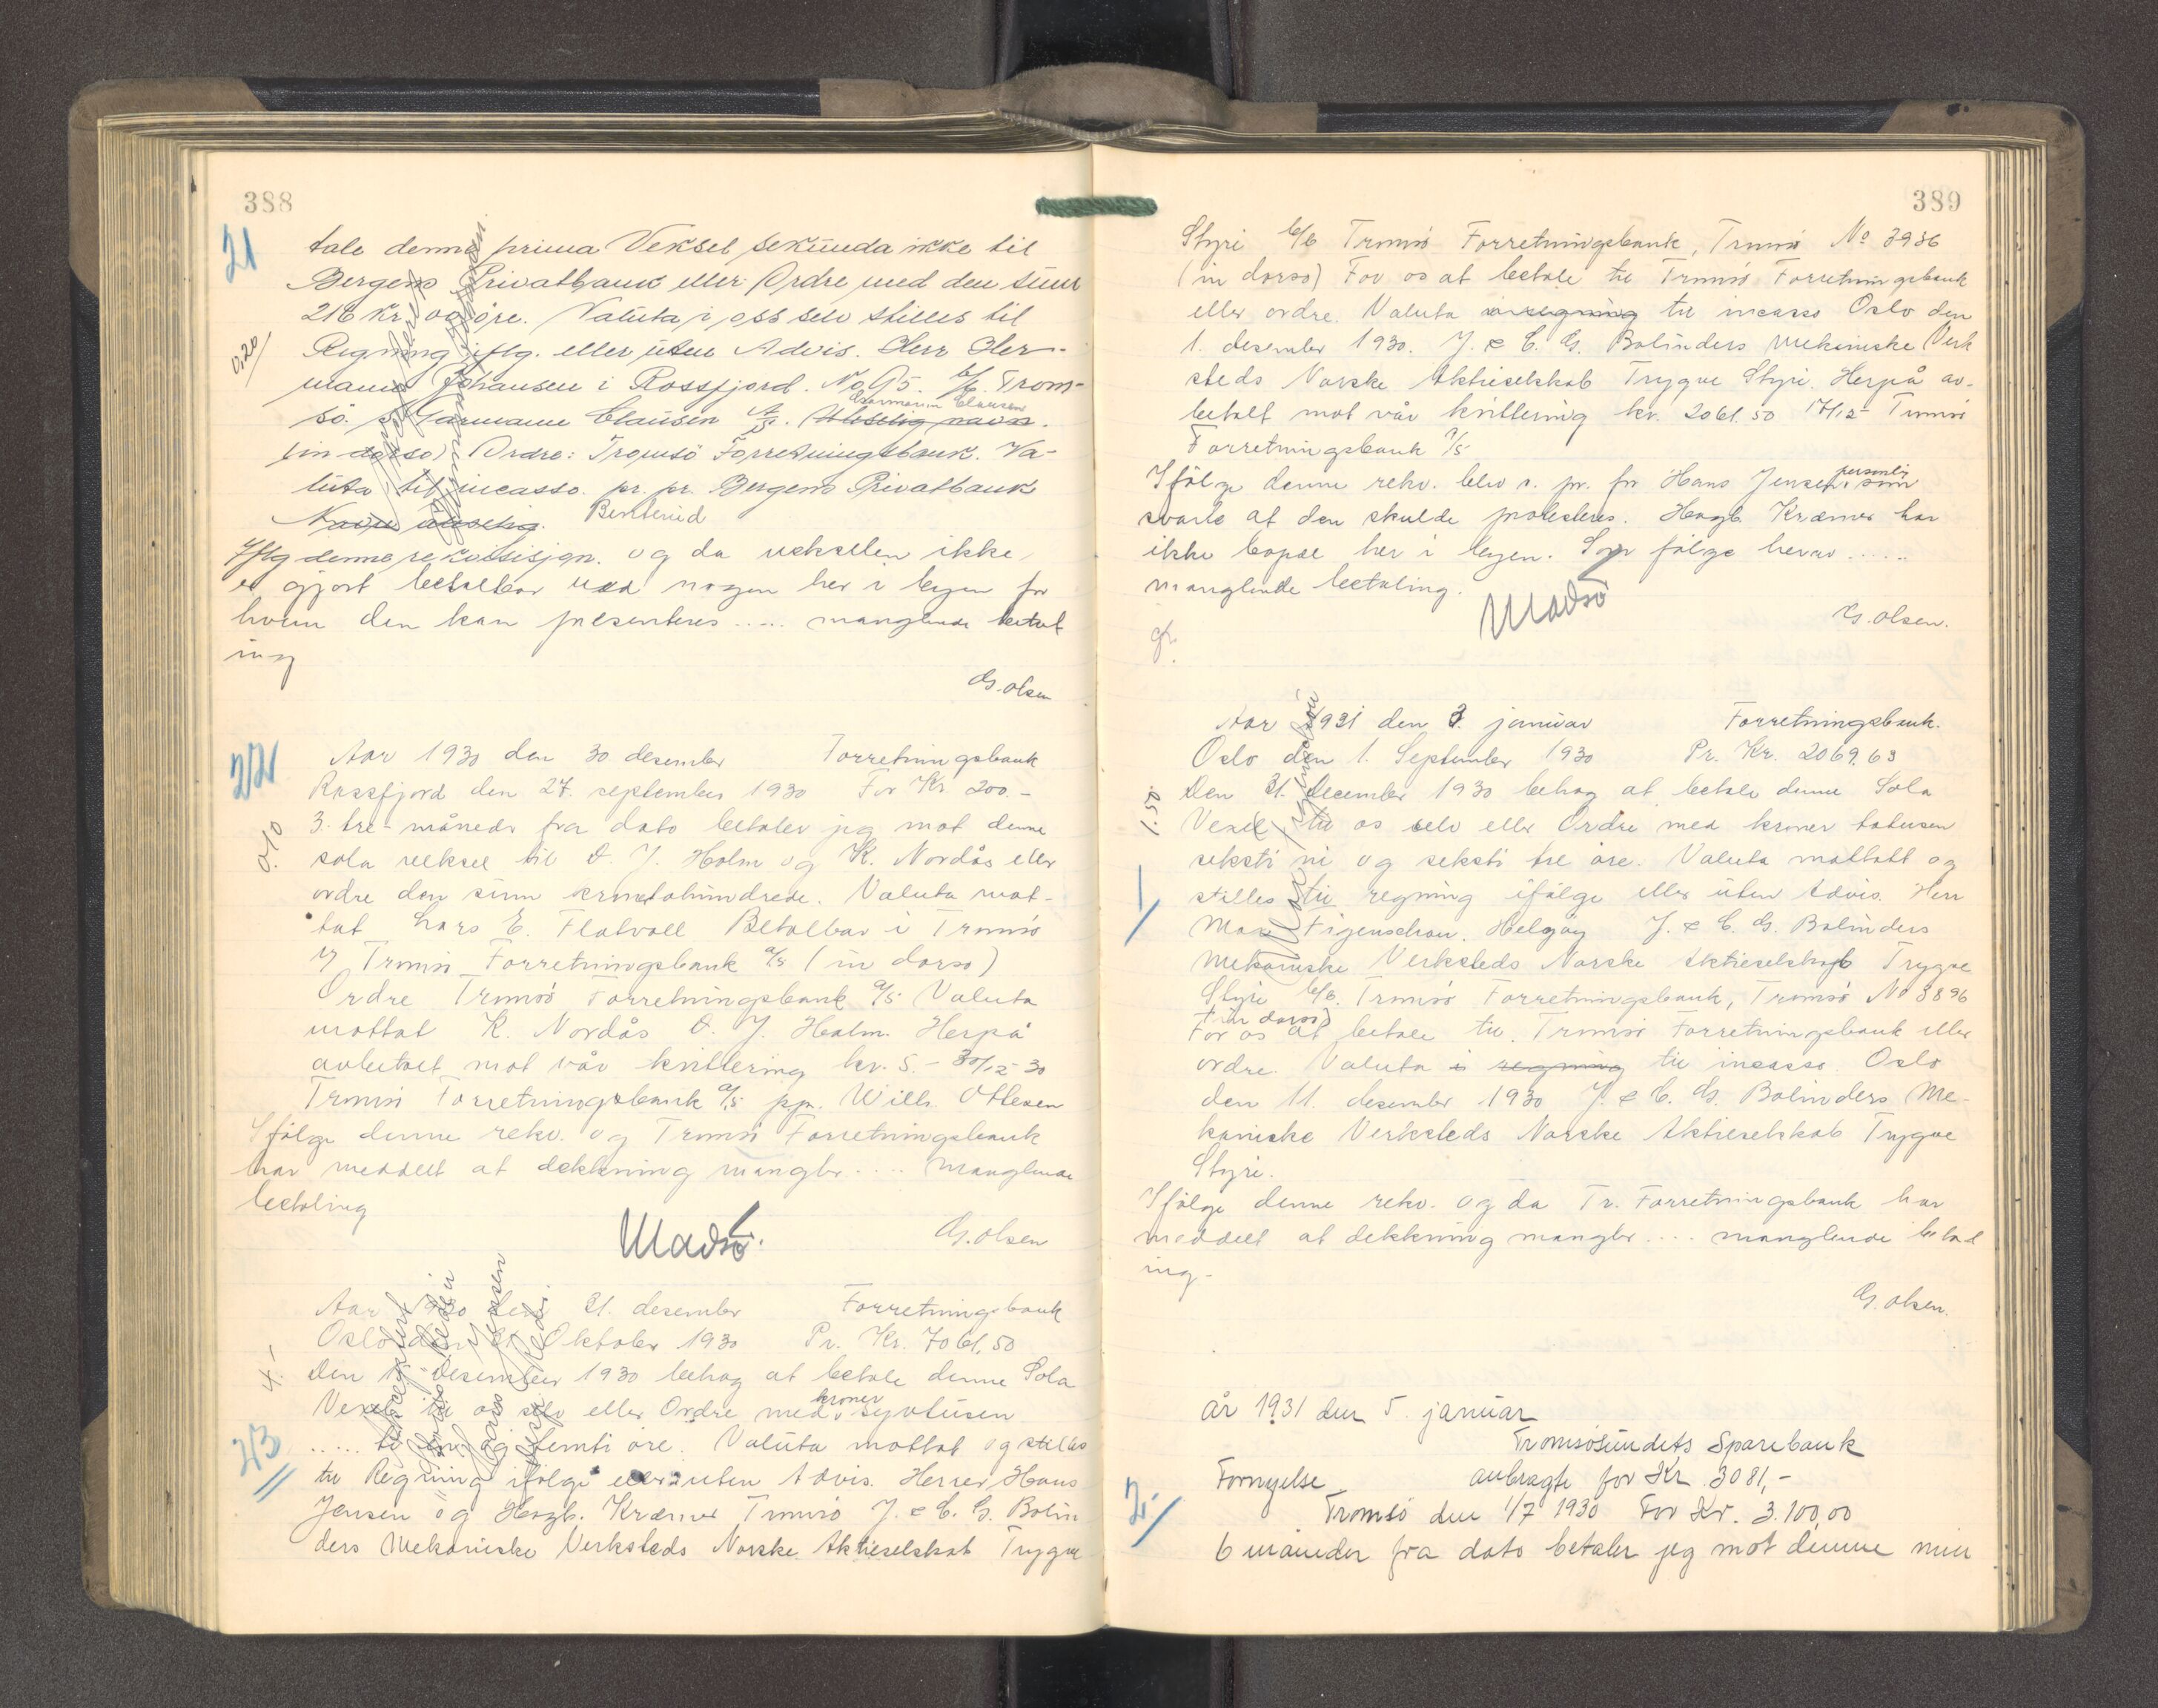 388
21
tale denne prima Veksel sekunda ikke til
Bergens Privatbank eller Ordre med den sum
216 Kr. 00 øre. Valuta i oss selv stilles til
0.20/
Regning iflg. eller uten Advis. Herr Her-
mann Johansen i Rossfjord. No 95. b/b. Trom-
sö. Harmann Clausen A/S. Uleselig navn.
(in dorso) Ordre: Tromsö Forretningsbank. Va-
luta til incasso. pr. pr. Bergens Privatbank
Navn uleselig.
Iflg denne rekvisisjon. og da vekselen ikke
er gjort betalbar ved nogen her i byen for
hvem den kan presenteres ..... manglende betal
ing
G. Olsen
22
Aar 1930 den 30 desember Forretningsbank
Rossfjord den 27. september 1930 For Kr. 200.-
0.10
3. tre - måneder fra dato betaler jeg mot denne
sola veksel til O. J. Holm og K. Nordås eller
ordre den sum kronertohundrede. Valuta mot-
tat Lars E. Flatvoll Betalbar i Tromsö
i/ Tromsö Forretningsbank A/S (in dorso)
Ordre Tromsö Forretningsbank A/S Valuta
mottat K. Nordås O. J. Holm. Herpå
avbetalt mot vår kvittering kr. 5.- 30/12-30
Tromsö Forretningsbank A/S pp. Wilh. Ottesen
Ifölge denne rekv. og Tromsö Forretningsbank
har meddelt at dekkning mangler .... manglende
betaling
Madsö.
G. Olsen
Aar 1930 den 31. desember Forretningsbank
Oslo den Oktober 1930 Pr. Kr. 7061,50
4.-
Den 1 desember 1930 behag at betale denne Sola
Vexel til os selv eller Ordre med kroner syvtusen
23
..... og femti øre. Valuta mottat og stilles
til Regning ifölge eller uten Advis. Herrer Hans
Jensen og Hagb. Kræmer Tromsö J. & C. G. Bolin
ders Mekaniske Verksteds Norske Aktieselskab Trygve
389
Styri b/b Tromsö Forretningsbank, Tromsö No 3936
(in dorso) For os at betale til Tromsö Forretningsbank
eller ordre. Valuta i regning til incasso Oslo den
1. desember 1930. J. & C. G. Bolinders Mekaniske Verk
steds Norske Aktieselskab Trygve Styri. Herpå av-
betalt mot vår kvittering kr. 2061.50 17/12- Tromsö
Forretningsbank A/S
Ifölge denne rekv. blev v. pr. for Hans Jensen personlig som
svarte at den skulde protesteres. Hagb. Kræmer har
ikke bopæl her i byen. Som følge herav .....
manglende betaling.
Madsö
G. Olsen.
Aar 1931 den 3. januar Forretningsbank.
Oslo den 1. September 1930 Pr. Kr. 2069.63
1.50.
Den 31. December 1930 behag at betale denne Sola
Vexel til os selv eller Ordre med kroner totusen
seksti ni og seksti tre øre. Valuta mottatt og
1/
stilles til regning ifölge eller uten Advis. Herr
Max Figenschou. Helgøy J. & C. G. Bolinders
Mekaniske Verksteds Norske Aktieselskab Trygve
Styri b/b. Tromsö Forretningsbank, Tromsö No 3896
(in dorso)
For os at betale til Tromsö Forretningsbank eller
ordre. Valuta i regning til incasso. Oslo
den 11. desember 1930 J. & C. G. Bolinders Me-
kaniske Verksteds Norske Aktieselskab Trygve
Styri.
Ifölge denne rekv. og da Tr. Forretningsbank har
meddelt at dekkning mangler .... manglende betal
ing.
G. Olsen.
år 1931 den 5. januar
Tromsøsundets Sparebank
Fornyelse anbragte for Kr 3081,-
2/
Tromsö den 1/7 1930 For Kr. 3.100,00
6 måneder fra dato betaler jeg mot denne min